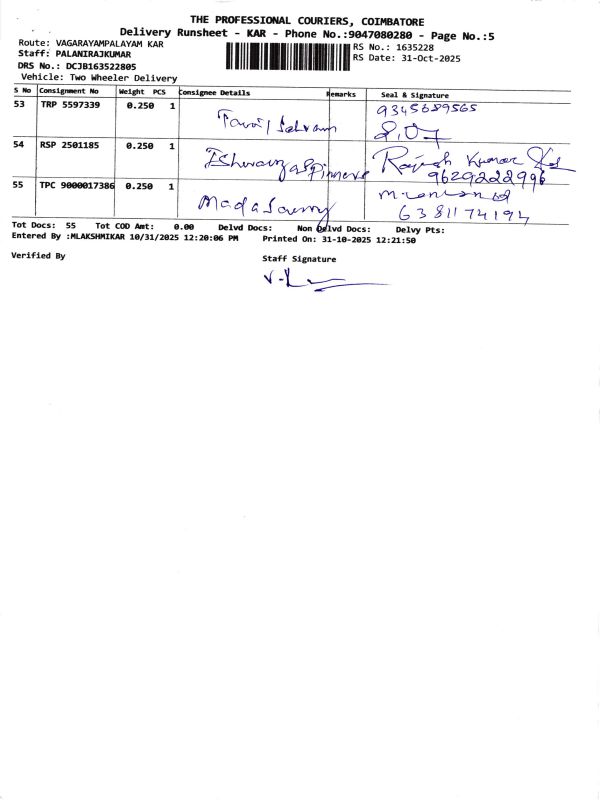 THE PROFESSIONAL COURIERS, COIMBATORE
Delivery Runsheet - KAR - Phone No.:9047080280 - Page No.:5
Route: VAGARAYAMPALAYAM KAR
RS No.: 1635228
Staff: PALANIRAJKUMAR
RS Date: 31-Oct-2025
DRS No.: DCJB163522805
Vehicle: Two Wheeler Delivery
S No Consignment No Weight PCS Consignee Details Remarks Seal & Signature
53 TRP 5597339 0.250 1 9345689565
54 RSP 2501185 0.250 1 Rajesh Kumar
9629222996
55 TPC 9000017386 0.250 1 Madasamy
6381174194
Tot Docs: 55 Tot COD Amt: 0.00 Delvd Docs: Non Delvd Docs: Delvy Pts:
Entered By :MLAKSHMIKAR 10/31/2025 12:20:06 PM Printed On: 31-10-2025 12:21:50
Verified By
Staff Signature